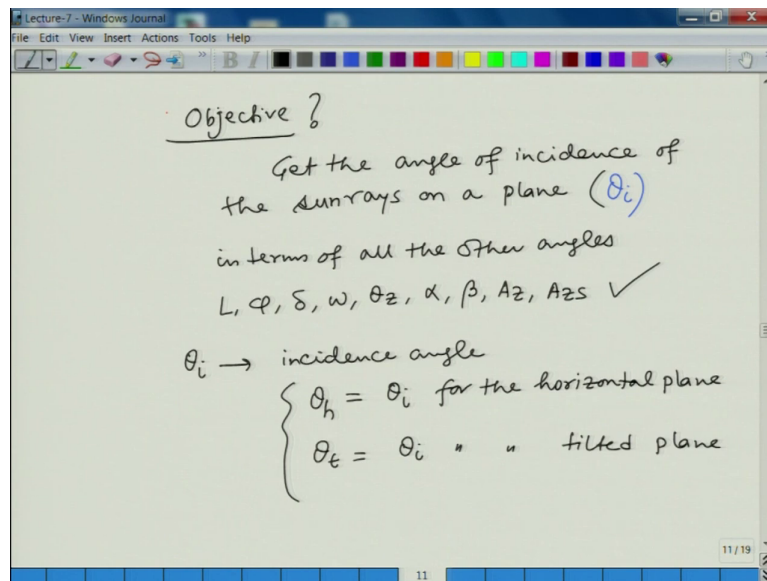 Lecture-7 - Windows Journal
File Edit View Insert Actions Tools Help
Objective ?
Get the angle of incidence of
the sunrays on a plane (θi)
in terms of all the other angles
L, φ, δ, ω, θz, α, β, Az, Azs ✓
θi → incidence angle
θh = θi for the horizontal plane
θt = θi " " tilted plane
11/19
11